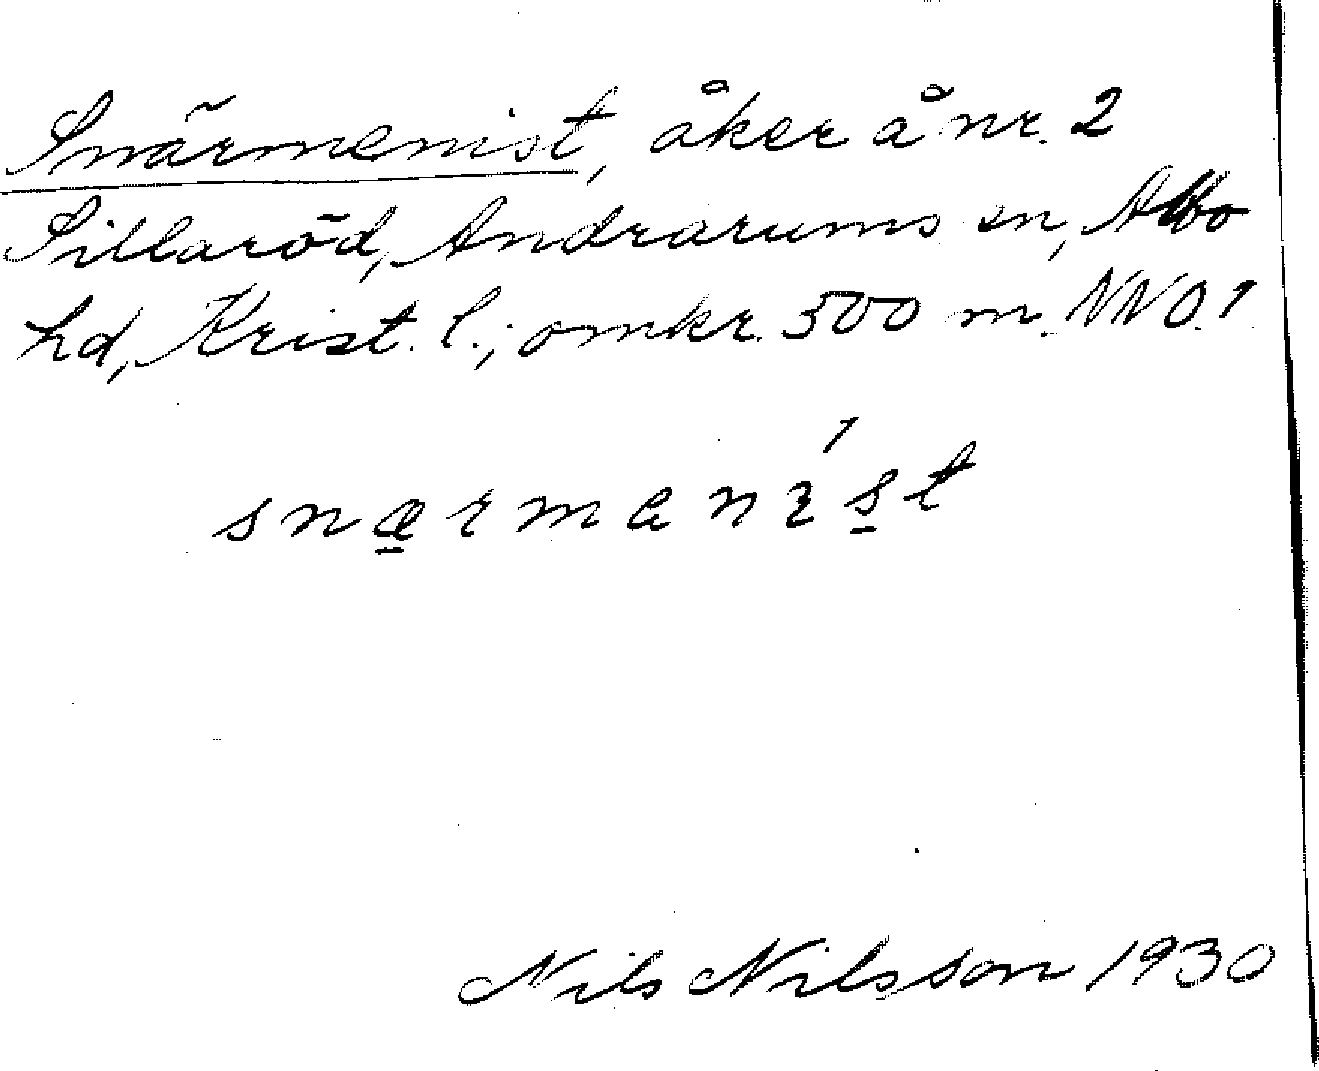 Snärmenist, åker å nr. 2
Sillaröd, Andrarums sn, Albo
hd, Krist. l.; omkr. 500 m. NNO. 1
snærmanıst
Nils Nilsson 1930